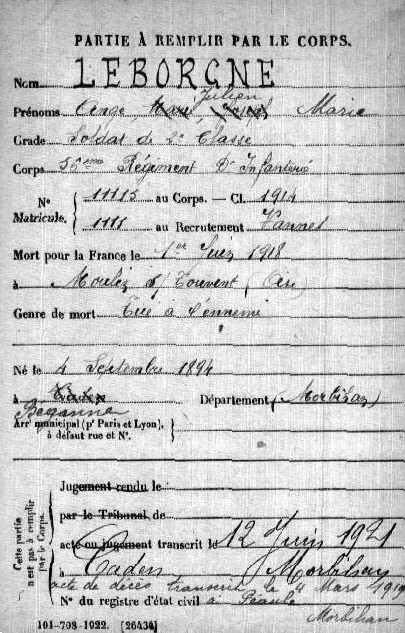 PARTIE À REMPLIR PAR LE CORPS.
Nom LEBORGNE
Julien
Prénoms Ange, Marie
Grade Soldat de 2e Classe
Corps 35eme Régiment D'Infanterie
N° 11115 au Corps. — Cl. 1914
Matricule. 1111 au Recrutement Vannes
Mort pour la France le 1er Juin 1918
à Moulin s/ Touvent (Oise)
Genre de mort Tué à l'ennemi
Né le 4 Septembre 1894
à Caden Département (Morbihan)
Béganne
Arrt municipal (pr Paris et Lyon),
à défaut rue et N°.
Cette partie
n'est pas à remplir
par le Corps.
Jugement rendu le
par le Tribunal de
acte ou jugement transcrit le 12 Juin 1921
à Caden Morbihan
acte de décès transcrit le 4 Mars 1919
N° du registre d'état civil à Péaule
Morbihan
101-708-1922. [26434]